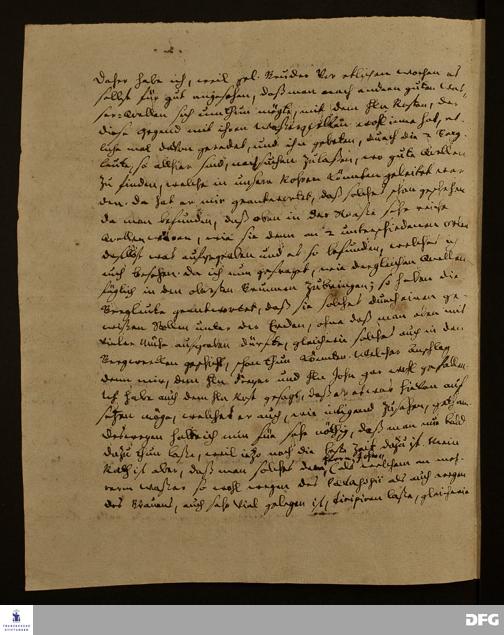 - 2 -
Daher habe ich, weil gel. Bruder vor etlichen wochen es
selbst für gut angesehen, daß man nach andern guten Was-
ser-Quellen sich umthun mögte, mit dem Hn. Kosten, der
diese Gegend mit ihren Wasserquellen wohl inne hat, et-
liche mal davon geredet, und ihn gebeten, durch die 2 Berg-
leute, so allhier sind, nachsuchen zulassen, wo gute Quellen
zu finden, welche in unsere Röhren könnten geleitet wer-
den. da hat er mir geantwortet, daß solches schon geschehen
da man befunden, daß oben in der sehr reiche
Quellen wären, wie sie denn an 2 unterschiedenen orten
daselbst was aufgegraben und es so befunden, welches er
auch besehen. da ich nun gefraget, wie dergleichen Quellen
füglich in den obersten Brunnen zubringen; so haben die
Bergleute geantwortet, daß sie solches durch einen ge-
wissen Stollen unter der Erden, ohne daß man eben mit
vieler Mühe aufgraben dürfte, gleichwie solches auch in den
Bergwercken geschieht, schon thun könnten. Welcher Anschlag
denn mir, dem Hn. Freyer und Hn. John gar wohl gefallen.
Ich habe auch dem Hn. Kost gesagt, daß er etwas hievon auf-
setzen möge, welches er auch, wie inliegend zusehen, gethan.
Deswegen halte ich nun für sehr nöthig, daß man nur bald
dazu thun lasse, weil itzo noch die beste Zeit dazu ist. Mein
Rath ist aber, daß man solches dem Herrn John, (als welchem an meh-
rerm wasser so wohl wegen des Paedagogii als auch wegen
des Brauens, auch sehr viel gelegen ist, dirigiren lasse, gleichwie
FRANCKESCHE STIFTUNGEN
DFG